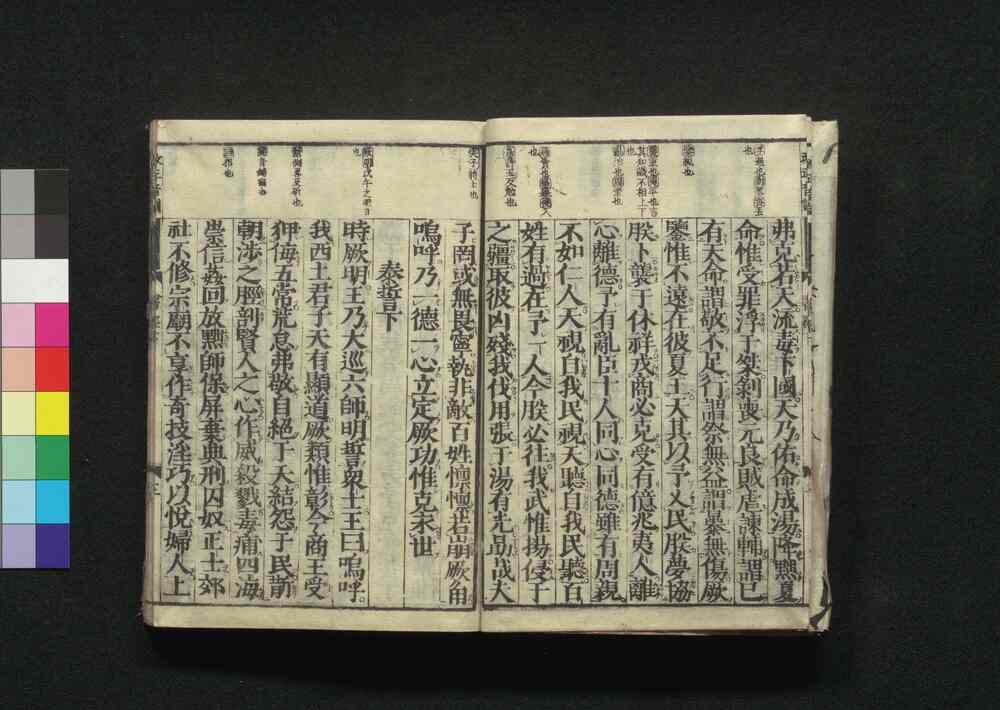 弗克若天流毒下國天乃佑命成湯降黜夏
命惟受罪浮于桀剝喪元良賊虐諫輔謂己
有天命謂敬不足行謂祭無益謂暴無傷厥
鑒惟不遠在彼夏王天其以予乂民朕夢協
朕卜襲于休祥戎商必克受有億兆夷人離
心離德予有亂臣十人同心同德雖有周親
不如仁人天視自我民視天聽自我民聽百
姓有過在予一人今朕必往我武惟揚侵于
之疆取彼凶殘我伐用張于湯有光勗哉夫
子罔或無畏寧執非敵百姓懍懍若崩厥角
嗚呼乃一德一心立定厥功惟克永世
泰誓下
時厥明王乃大巡六師明誓眾士王曰嗚呼
我西土君子天有顯道厥類惟彰今商王受
狎侮五常荒怠弗敬自絕于天結怨于民斮
朝涉之脛剖賢人之心作威殺戮毒痡四海
崇信姦回放黜師保屏棄典刑囚奴正士郊
社不修宗廟不享作奇技淫巧以悅婦人上